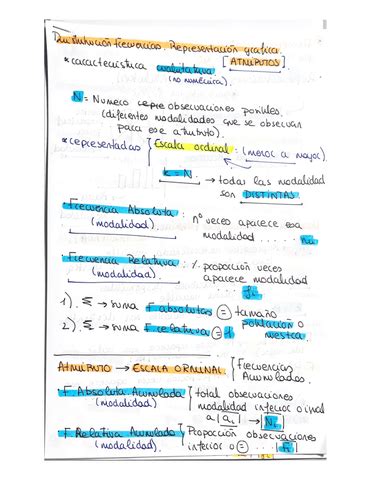 Distribución Frecuencias. Representación gráfica.
* característica cualitativa [ATRIBUTOS]
(no numérica).
N = Numero observaciones posibles.
(diferentes modalidades que se observan
para ese atributo).
* representadas Escala ordinal: (menor a mayor)
k = N. → todas las modalidad
son DISTINTAS
· Frecuencia Absoluta: nº veces aparece esa
(modalidad). modalidad . . . . . ni
· Frecuencia Relativa: proporción veces
(modalidad). aparece modalidad
. . . . . . . . fi.
1). Σ → suma F absolutas = tamaño
población o
2). Σ → suma F relativa = 1 muestra.
ATRIBUTO → ESCALA ORDINAL Frecuencias
Acumulados.
· F Absoluta Acumulada total observaciones
(modalidad) modalidad inferior o igual
a |ai| → Ni
· F Relativa Acumulada Proporción observaciones
(modalidad). inferior o = . . . Fi